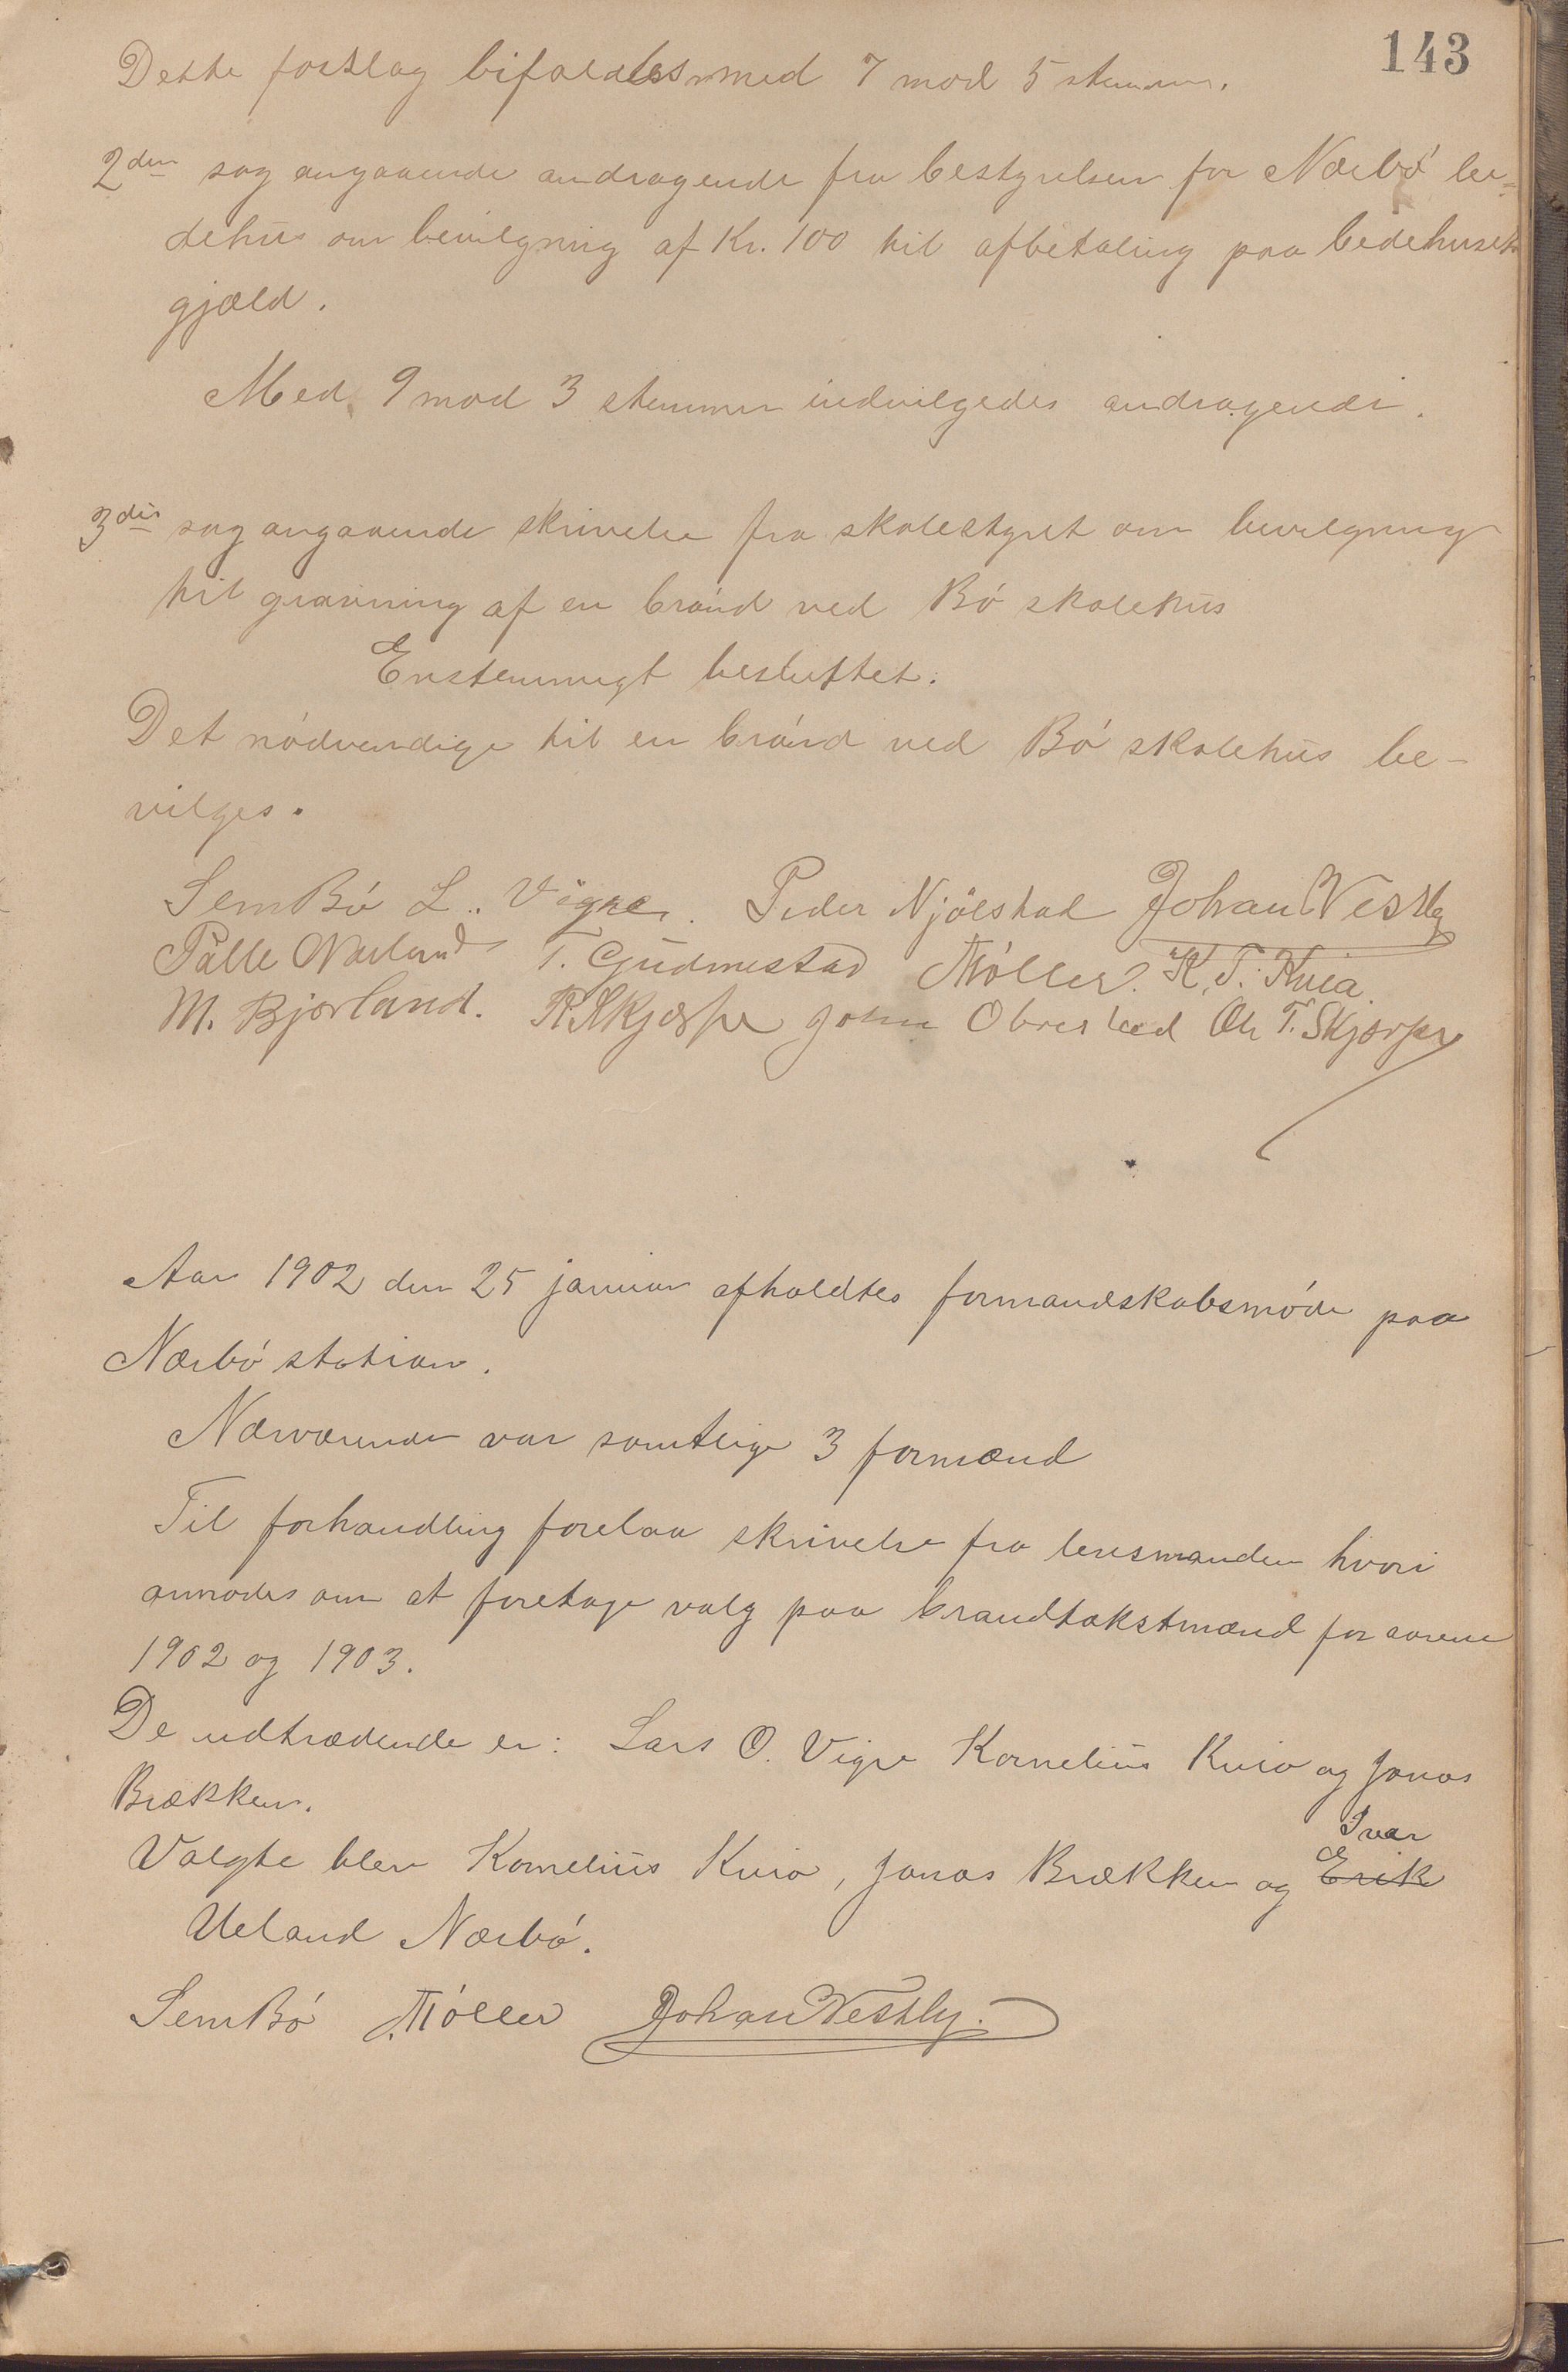 143
Dette forslag bifaldtes med 7 mod 5 stemmer.
2den sag angaaende andragende fra bestyrelsen for Nærbø be=
dehus om bevilgning af Kr. 100 til afbetaling paa bedehusets
gjæld.
Med 9 mod 3 stemmer indvilgedes andragendet.
3die sag angaaende skrivelse fra skolestyret om bevilgning
til gravning af en brønd ved Bø skolehus
Enstemmigt besluttet:
Det nødvendige til en brønd ved Bø skolehus be-
vilges.
Sem Bø L. Vigre. Peder Njølstad Johan Vestly
Palle Nærland T. Gudmestad Møller. K. T. Kvia.
M. Bjorland. R. Skjærpe John Obrestad Ole T. Skjærpe
Aar 1902 den 25 januar afholdtes formandskabsmøde paa
Nærbø station.
Nærværende var samtlige 3 formænd
Til forhandling forelaa skrivelse fra lensmanden hvori
anmodes om at foretage valg paa brandtakstmænd for aarene
1902 og 1903.
De udtrædende er: Lars O. Vigre Kornelius Kvia og Jonas
Brækken.
Ivar
Valgte blev Kornelius Kvia, Jonas Brækken og Erik
Ueland Nærbø.
Sem Bø Møller Johan Vestly.